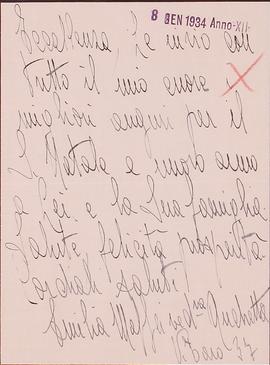 8 GEN 1934 Anno-XII-
Eccellenza, Le invio con
tutto il mio cuore i
migliori auguri per il
S. Natale e nuovo anno
a Lei e la Sua famiglia.
Salute felicità prosperità.
Cordiali saluti
Emilia